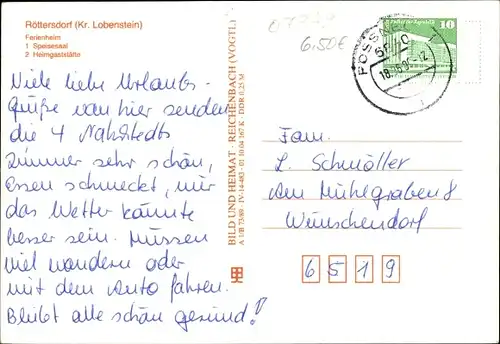 Röttersdorf (Kr. Lobenstein)
Ferienheim
1 Speisesaal
2 Heimgaststätte
Viele liebe Urlaubs-
grüße von hier senden
die 4 Nahrstedts
Zimmer sehr schön,
essen schmeckt, nur
das Wetter könnte
besser sein. Müssen
viel wandern oder
mit dem Auto fahren.
Bleibt alle schön gesund!
BILD UND HEIMAT · REICHENBACH (VOGTL.)
A 1/B 73/89 · IV-14-483 · 01 10 04 167 K · DDR 0,25 M
6,50€
10
PÖSSNECK 1
6840
Fam.
L. Schmöller
Am Mühlgraben 8
Wünschendorf
6519